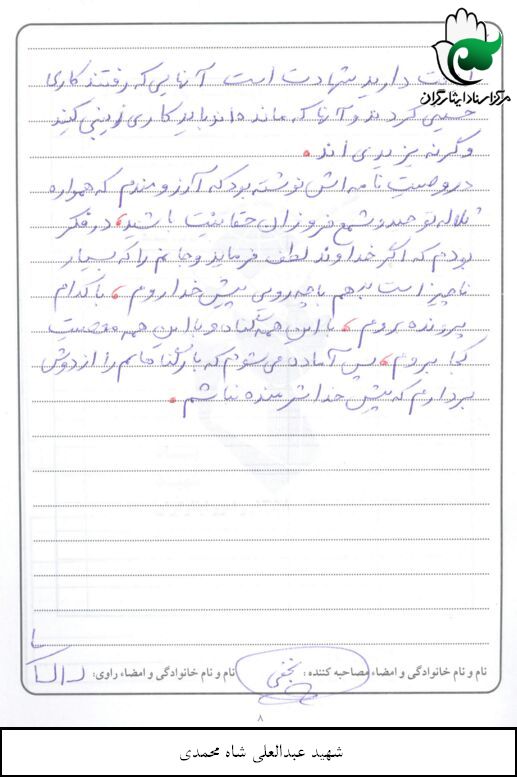 مرکز اسناد ایثارگران
دارید شهادت است آنهایی که رفتند کاری
حسینی کردند و آنها که مانده اند باید کاری زینبی کنند
وگرنه یزیدی اند.
در وصیت نامه اش نوشته بود که آرزومندم که همواره
لاله توحید و شمع فروزان حقانیت باشید، در فکر
بودم که اگر خداوند لطف فرماید و جانم را که بسیار
ناچیز است بدهم با چه رویی پیش خدا روم، با کدام
پرونده بروم، با این همه گناه و با این همه معصیت
کجا بروم، پس آماده می شوم که بار گناهانم را از دوش
بردارم که پیش خدا شرمنده نباشم.
نام و نام خانوادگی و امضاء مصاحبه کننده: نجفی نام و نام خانوادگی و امضاء راوی:
۸
شهید عبدالعلی شاه محمدی